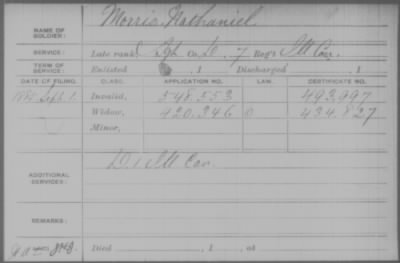 NAME OF SOLDIER: Morris Nathaniel
SERVICE: Late rank, Co. 7 Reg't Ill Cav.
TERM OF SERVICE: Enlisted , 1 Discharged , 1
DATE OF FILING. CLASS. APPLICATION NO. LAW. CERTIFICATE NO.
Sept. 1. Invalid, 548.553 493.997
Widow, 920.346 434.827
Minor,
ADDITIONAL SERVICES: Ill Cav.
REMARKS:
Died , 1 , at